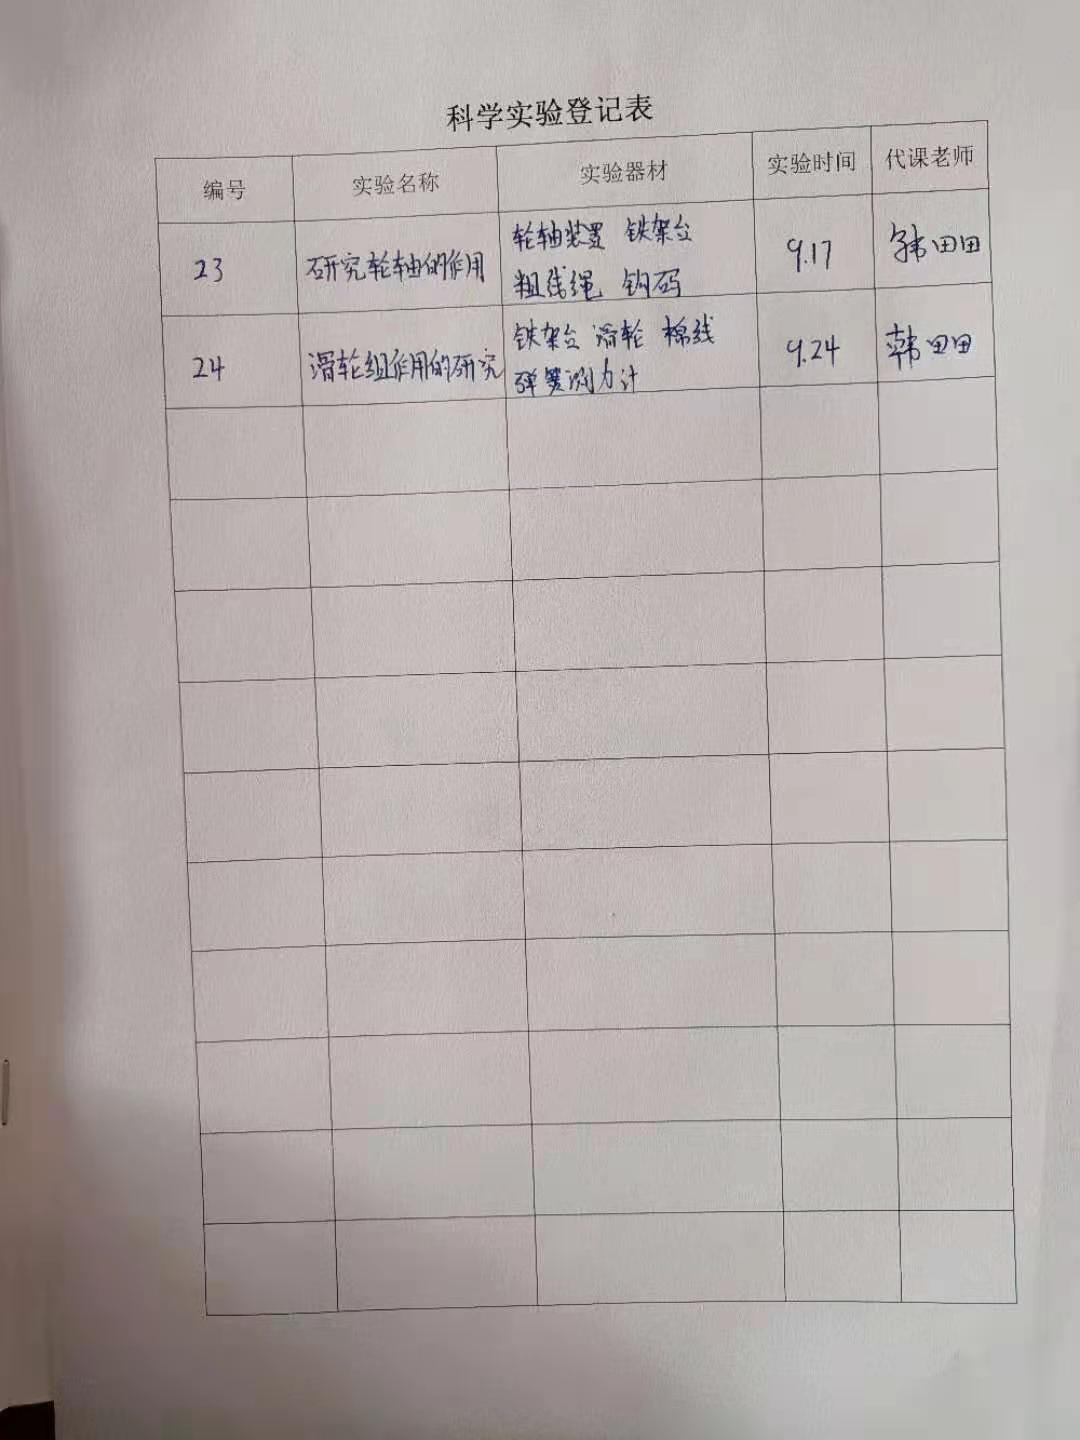 科学实验登记表
编号 实验名称 实验器材 实验时间 代课老师
23 研究轮轴的作用 轮轴装置 铁架台 9.17 韩田田
粗线绳 钩码
24 滑轮组作用的研究 铁架台 滑轮 棉线 9.24 韩田田
弹簧测力计